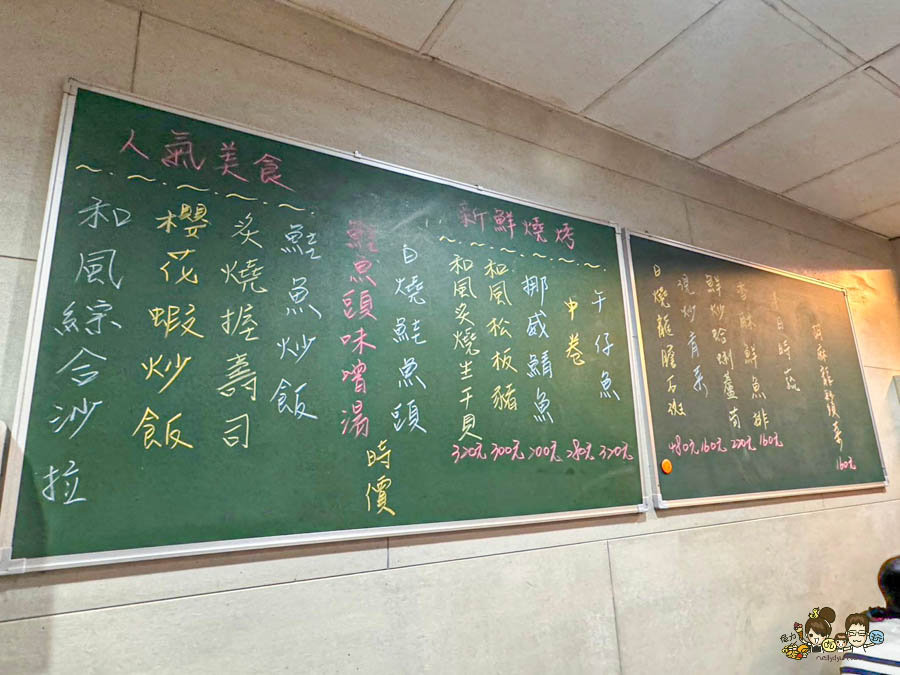 人氣美食
和風綜合沙拉
櫻花蝦炒飯
炙燒握壽司
鮭魚炒飯
鮭魚頭味噌湯
白燒鮭魚頭
時價
新鮮燒烤
和風炙燒生干貝 320元
和風松板豬 300元
挪威鯖魚 200元
中卷 280元
午仔魚 320元
白燒龍膽石斑 480元
現炒青菜 160元
鮮炒蛤蜊蘆筍 220元
香酥鮮魚排 160元
時蔬
胡麻龍鬚菜 160元